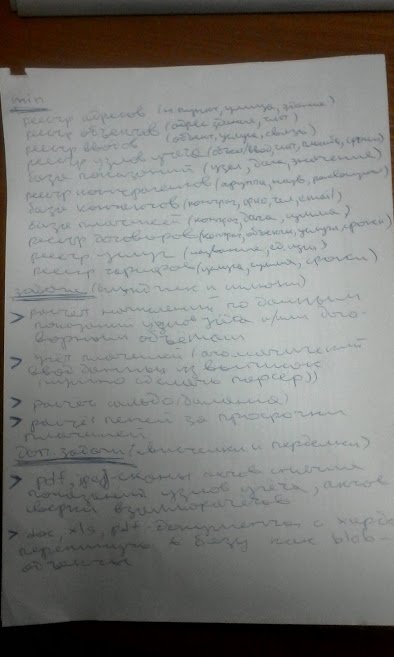 min
реестр адресов (н.пункт, улица, здание)
реестр объектов (адрес, здание, тип)
реестр вводов (объект, услуга, связи)
реестр узлов учета (объект/ввод, счет, сроки)
база показаний (узел, дата, значение)
реестр контрагентов (группа, назв, реквизиты)
база контактов (контраг, фио, тел, email)
база платежей (контраг, дата, сумма)
реестр договоров (контраг, объекты, услуги, сроки)
реестр услуг (название, ед.изм)
реестр тарифов (услуга, сумма, сроки)
задачи
> расчет начислений по данным
показаний узлов учета и/или дого-
ворным объемам
> учет платежей (автоматический
ввод данных из выписок
(нужно сделать парсер))
> расчет сальдо (баланса)
> расчет пеней за просрочки
платежей
доп. задачи (свистелки и перделки)
> pdf, jpg сканы актов снятия
показаний узлов учета, актов
сверки взаиморасчетов
> doc, xls, pdf документы с харда
в базу как blob-
объекты